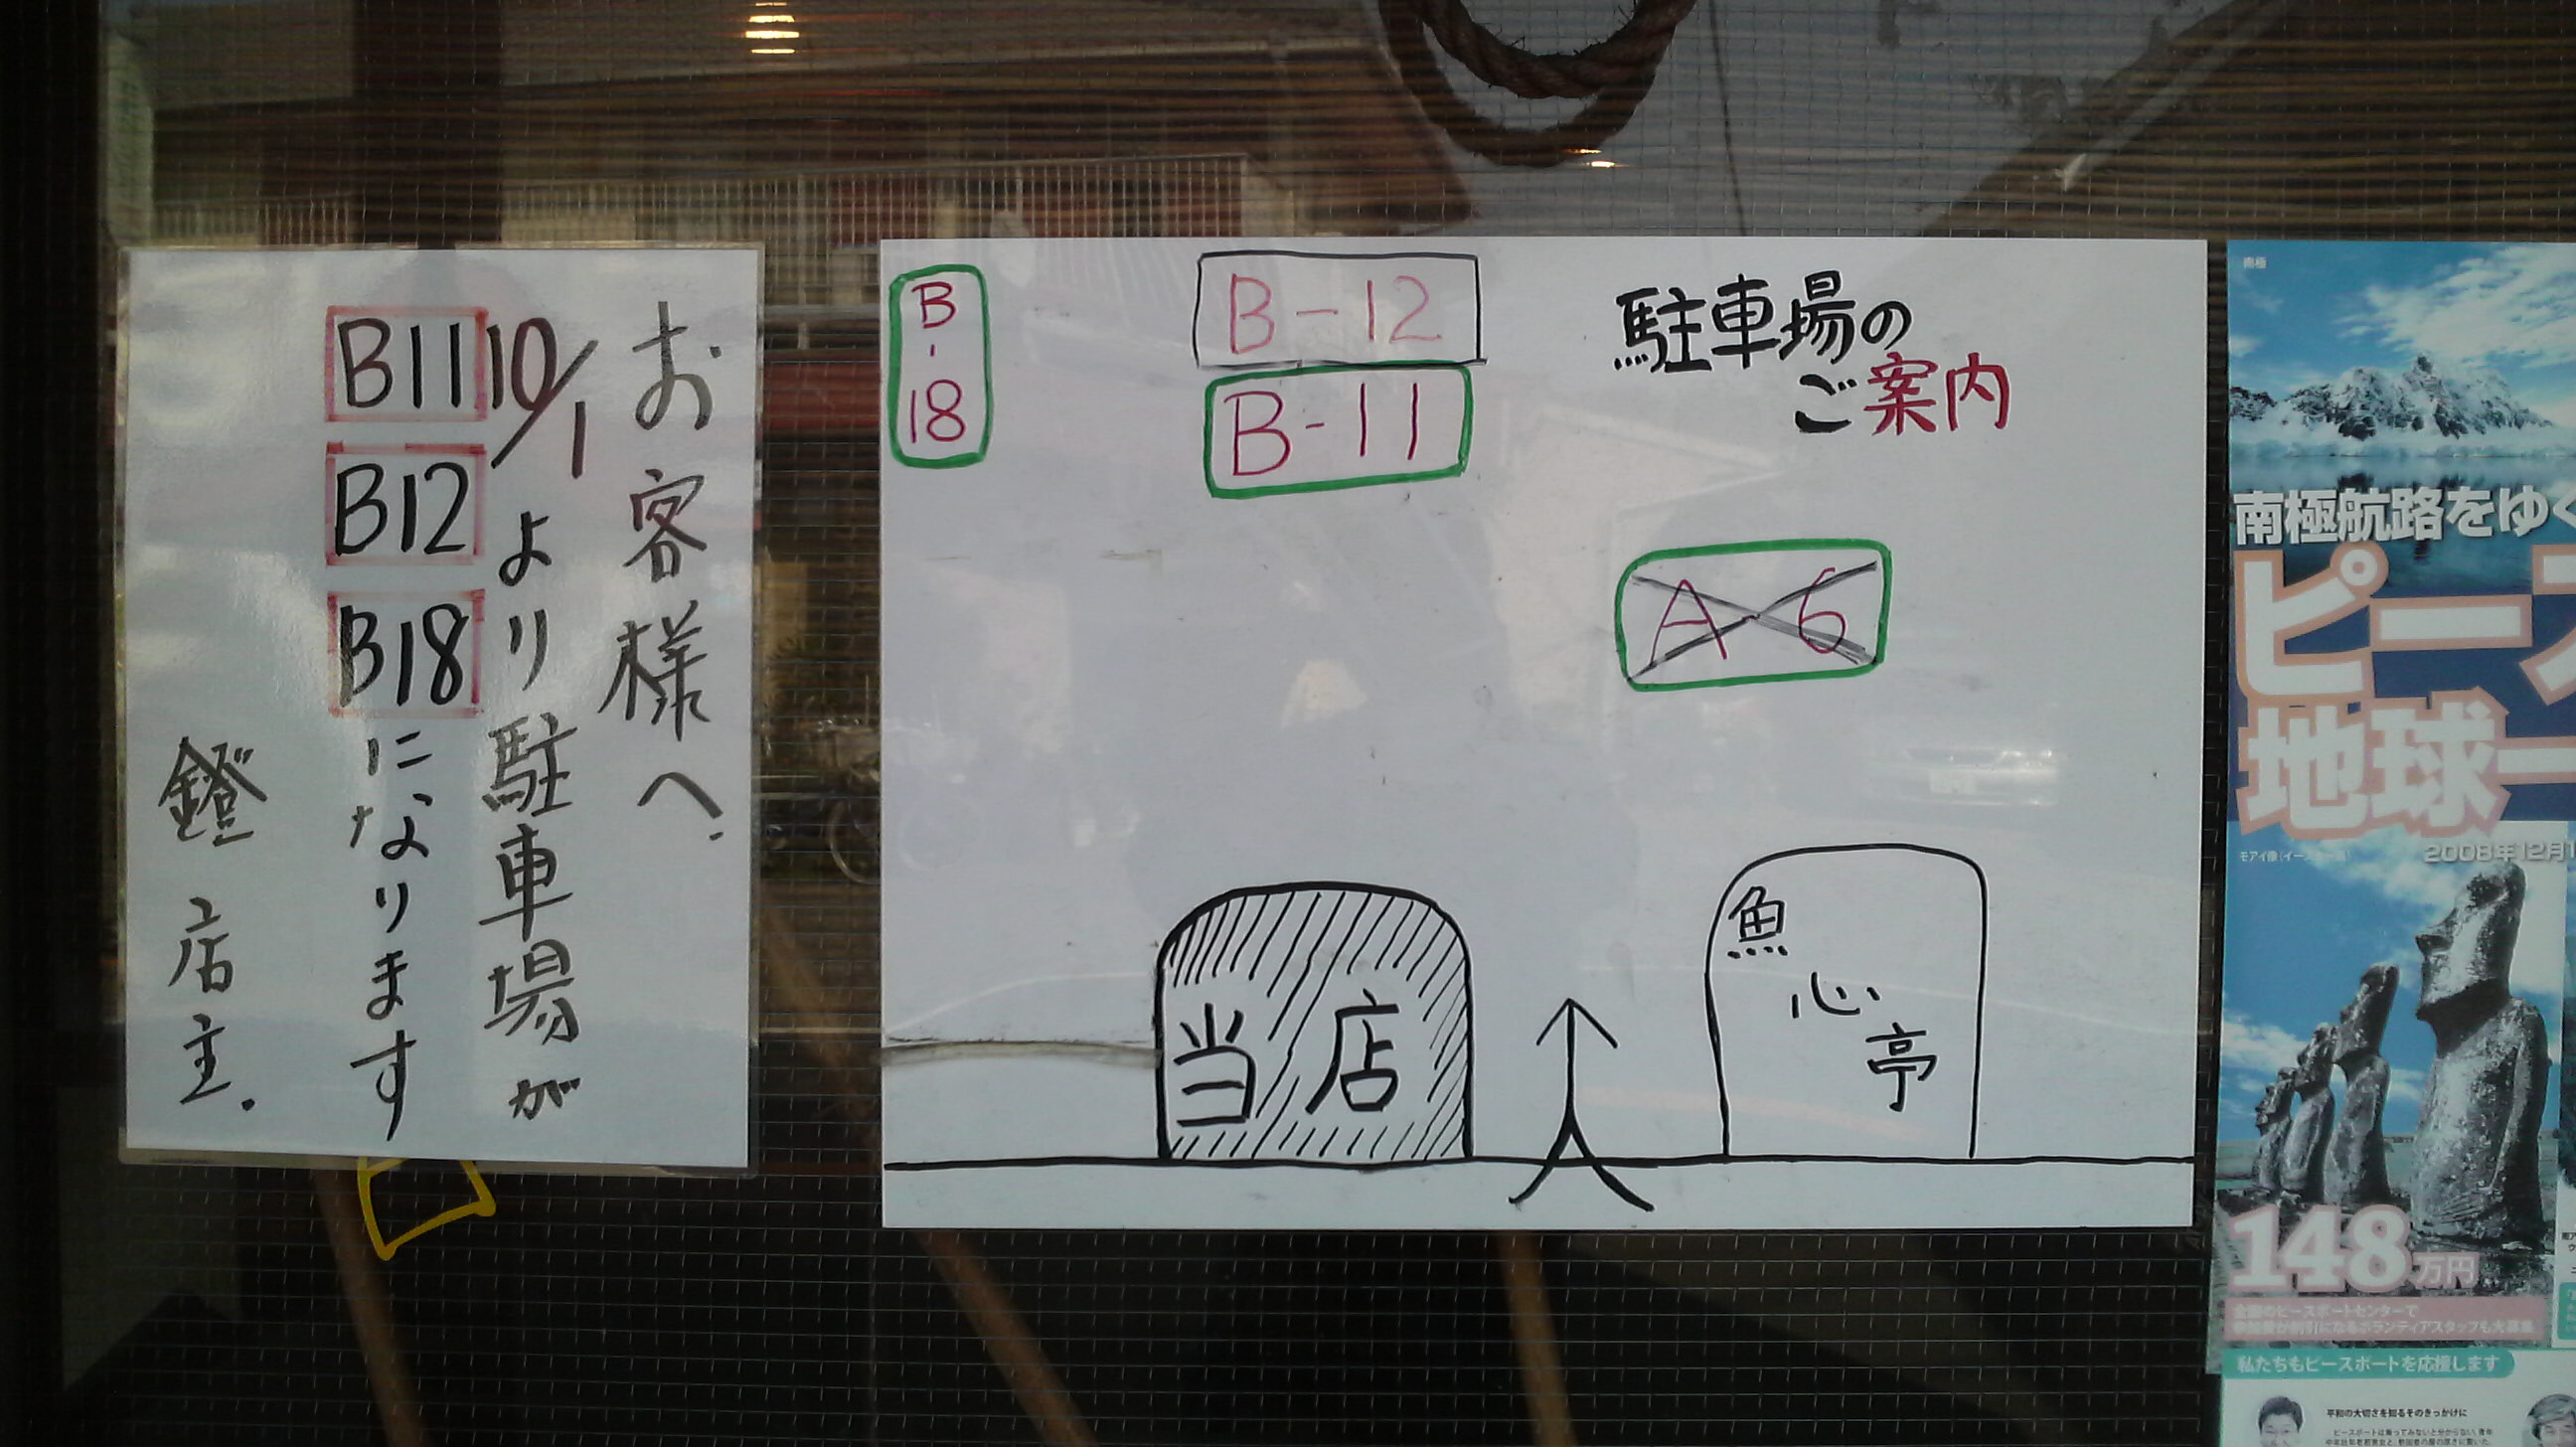 お客様へ.
10/1より駐車場が
B11 B12 B18になります
鐙 店主.
駐車場の
ご案内
B-18
B-12
B-11
A 6
当店
魚心亭
南極
南極航路をゆく
ピース
地球一
モアイ像(イースター島)
2008年12月1
148万円
全国のピースボートセンターで
私たちもピースボートを応援します
平和の大切さを知るそのきっかけに